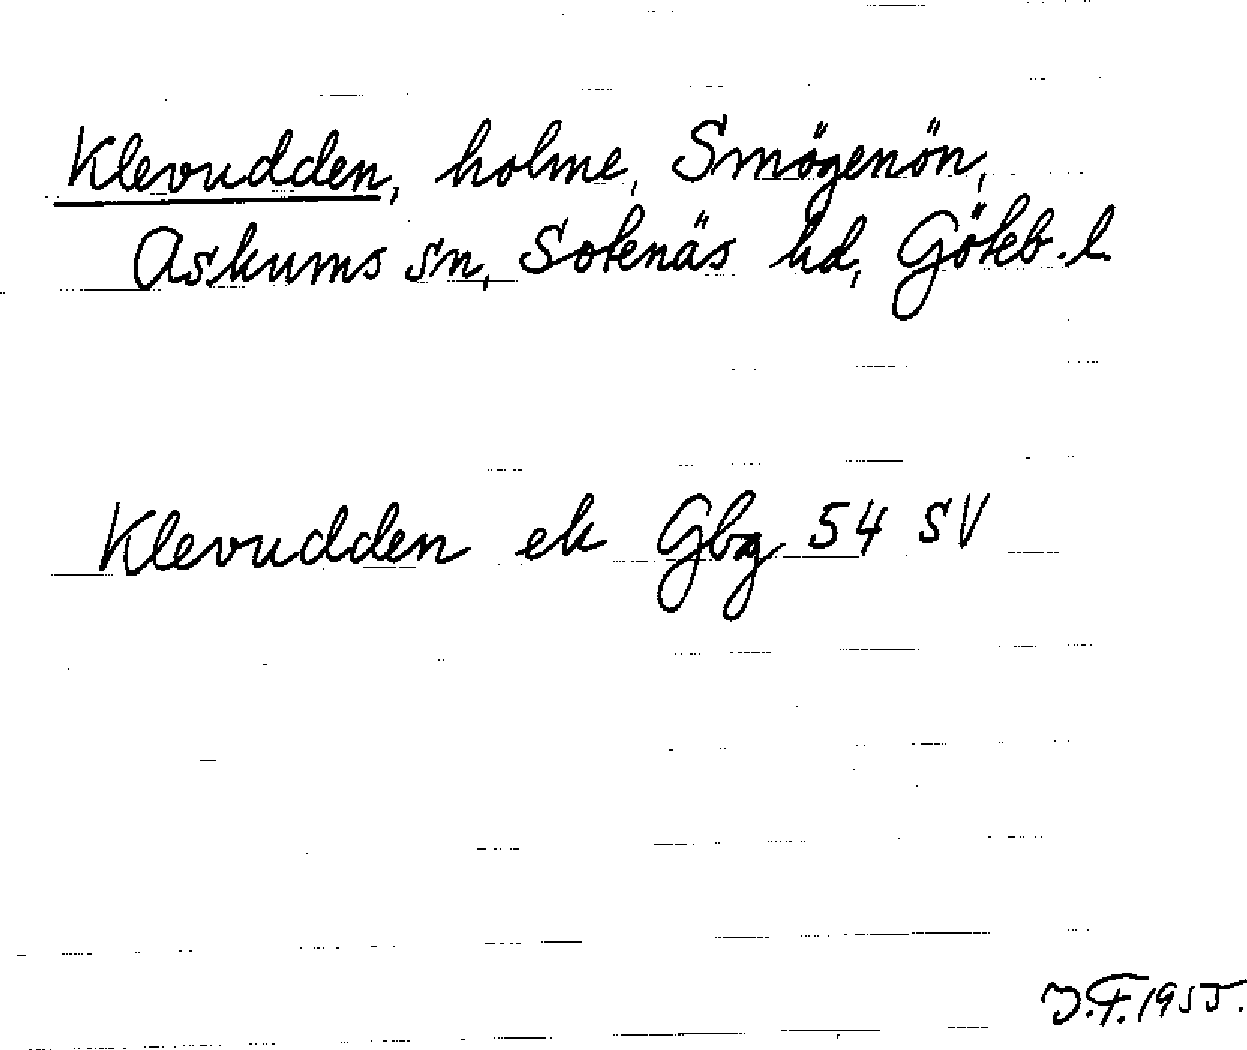 Klevudden, holme, Smögenön,
Askums sn, Sotenäs hd, Göteb. l.
Klevudden ek Gbg 54 SV
J.F. 1955.